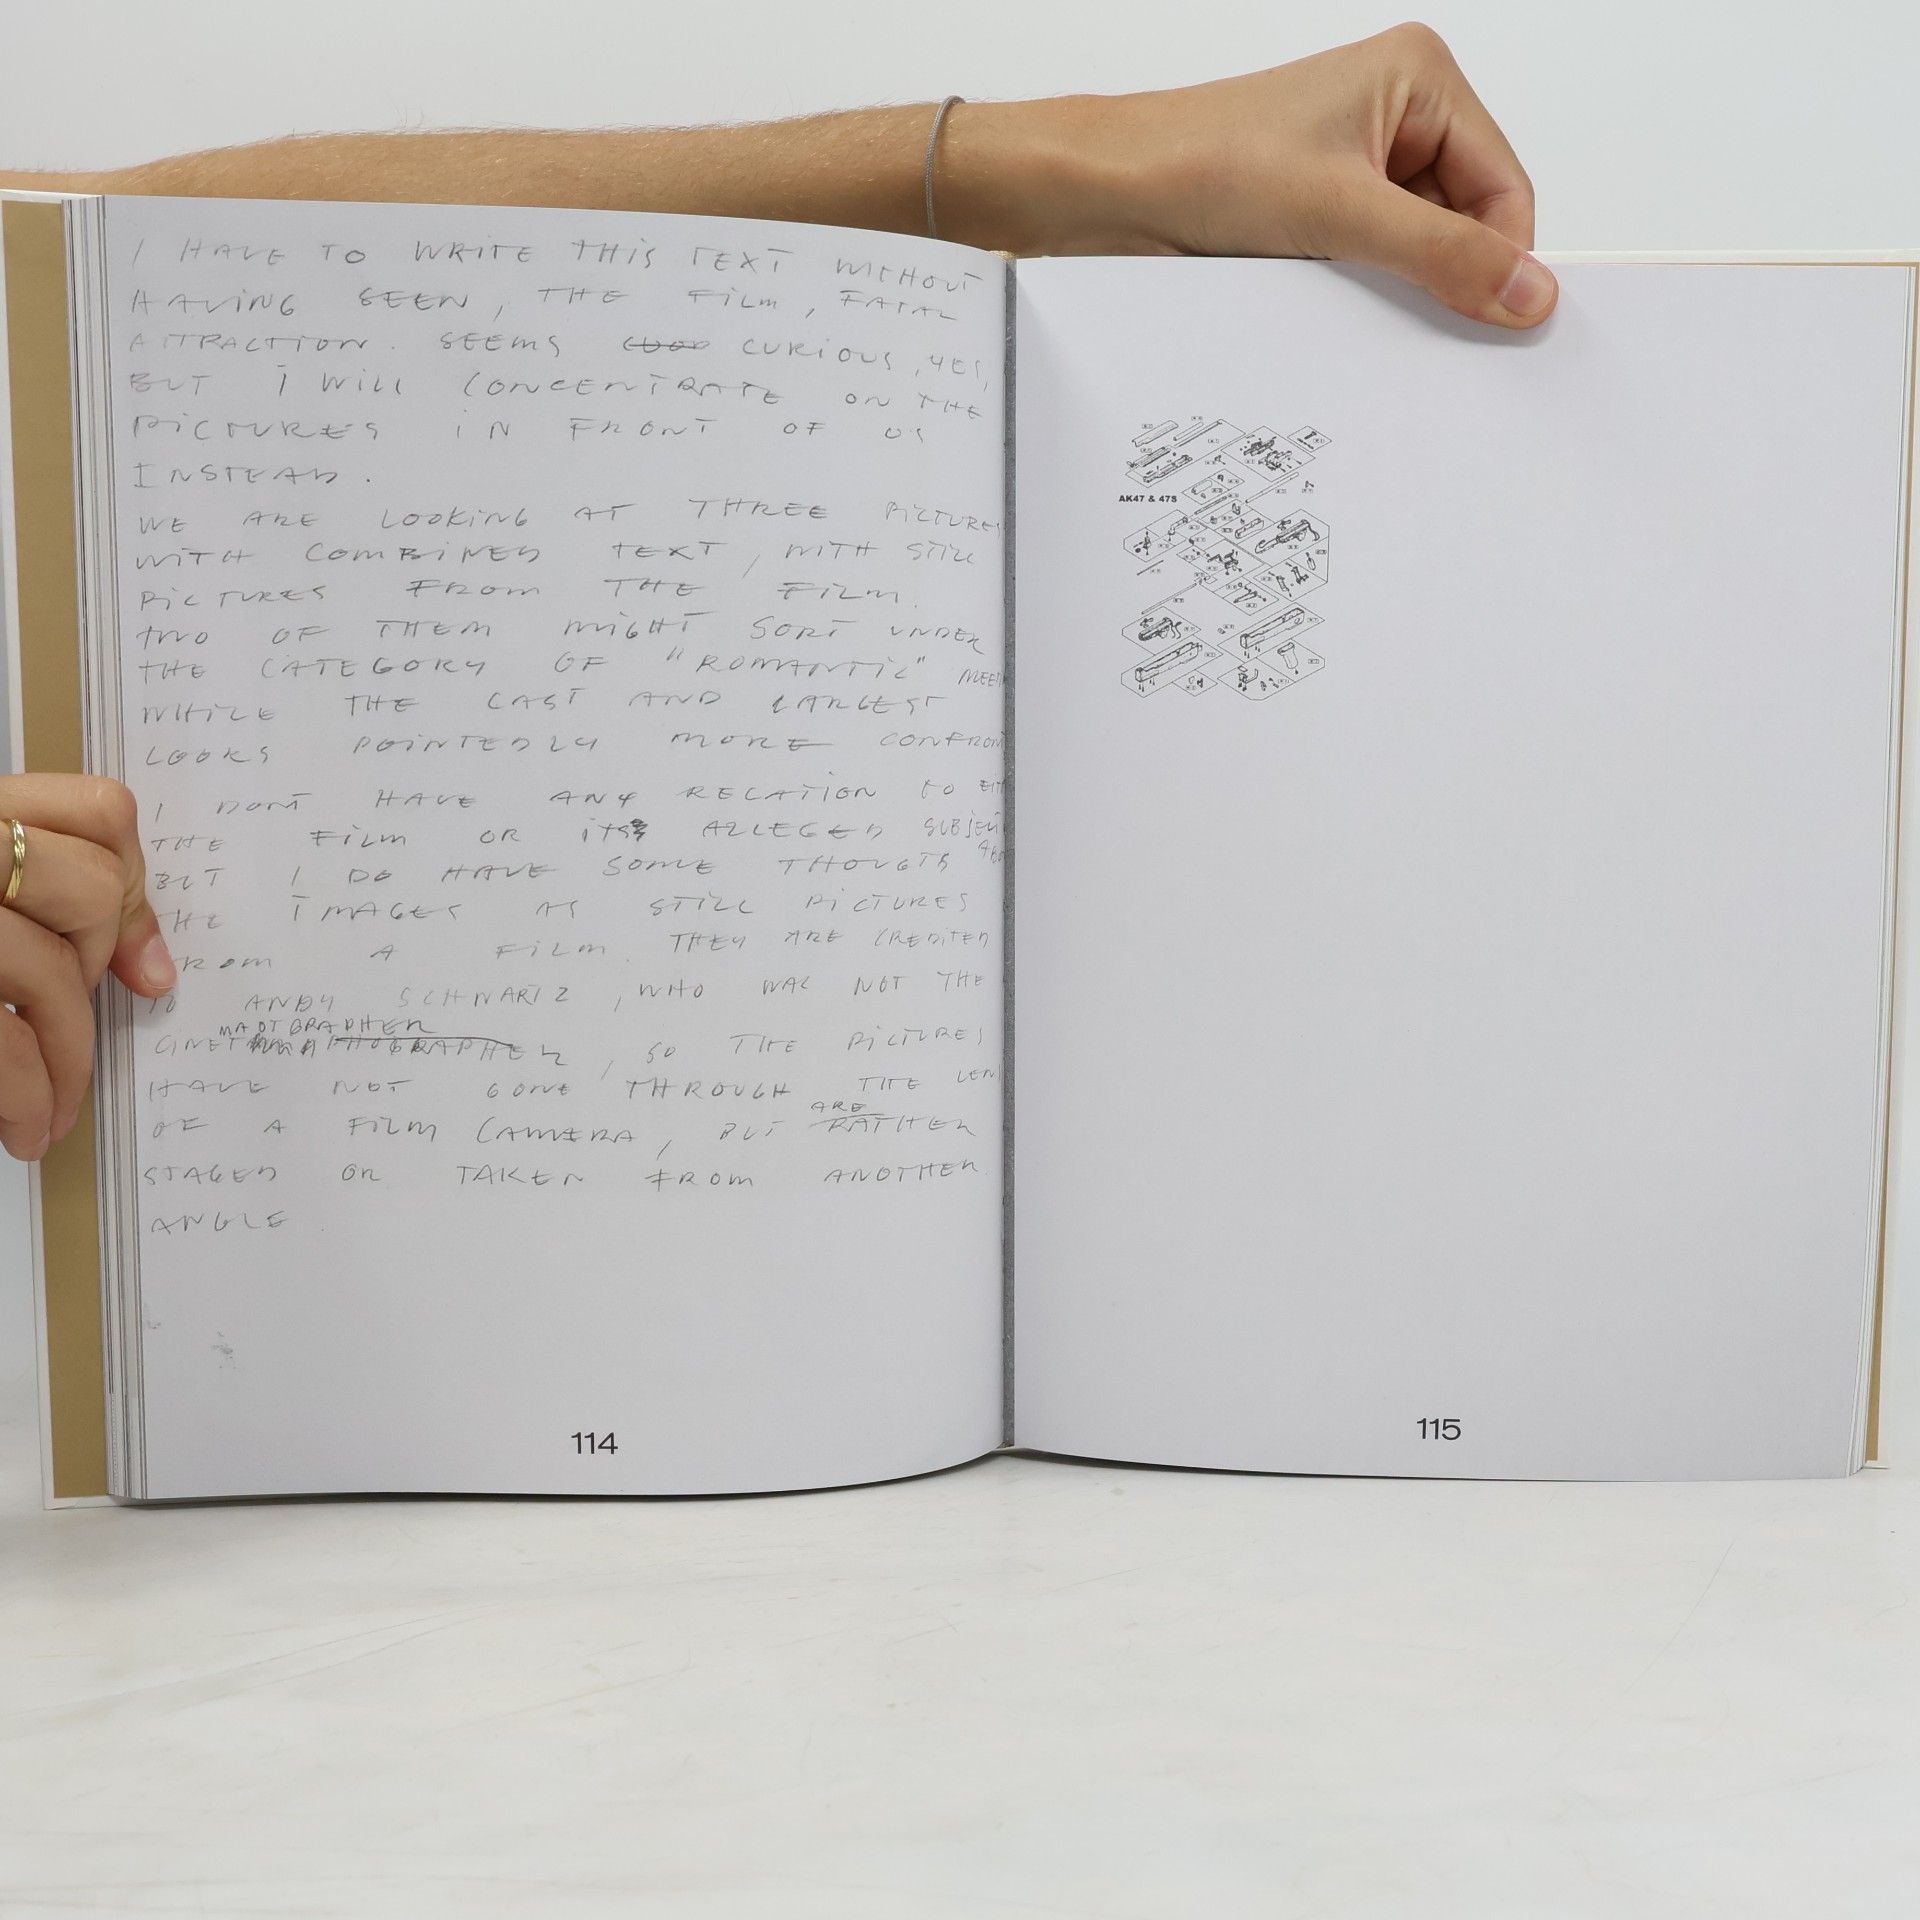 I HAVE TO WRITE THIS TEXT WITHOUT
HAVING SEEN, THE FILM, FATAL
ATTRACTION. SEEMS CURIOUS, YES,
BUT I WILL CONCENTRATE ON THE
PICTURES IN FRONT OF US
INSTEAD.
WE ARE LOOKING AT THREE PICTURES
WITH COMBINED TEXT, WITH STILL
PICTURES FROM THE FILM.
TWO OF THEM MIGHT SORT UNDER
THE CATEGORY OF "ROMANTIC" MEETI
WHILE THE LAST AND LARGEST
LOOKS POINTEDLY MORE CONFRON
I DONT HAVE ANY RELATION TO EIT
THE FILM OR ITS ALLEGED SUBJEC
BUT I DO HAVE SOME THOUGTS ABO
THE IMAGES AS STILL PICTURES
ROM A FILM. THEY ARE CREDITED
TO ANDY SCHWARTZ, WHO WAS NOT THE
MATOGRAPHER
CINE , SO THE PICTURES
HAVE NOT GONE THROUGH THE LEN
ARE
OF A FILM CAMERA, BUT RATHER
STAGED OR TAKEN FROM ANOTHER
ANGLE.
114
AK47 & 47S
115